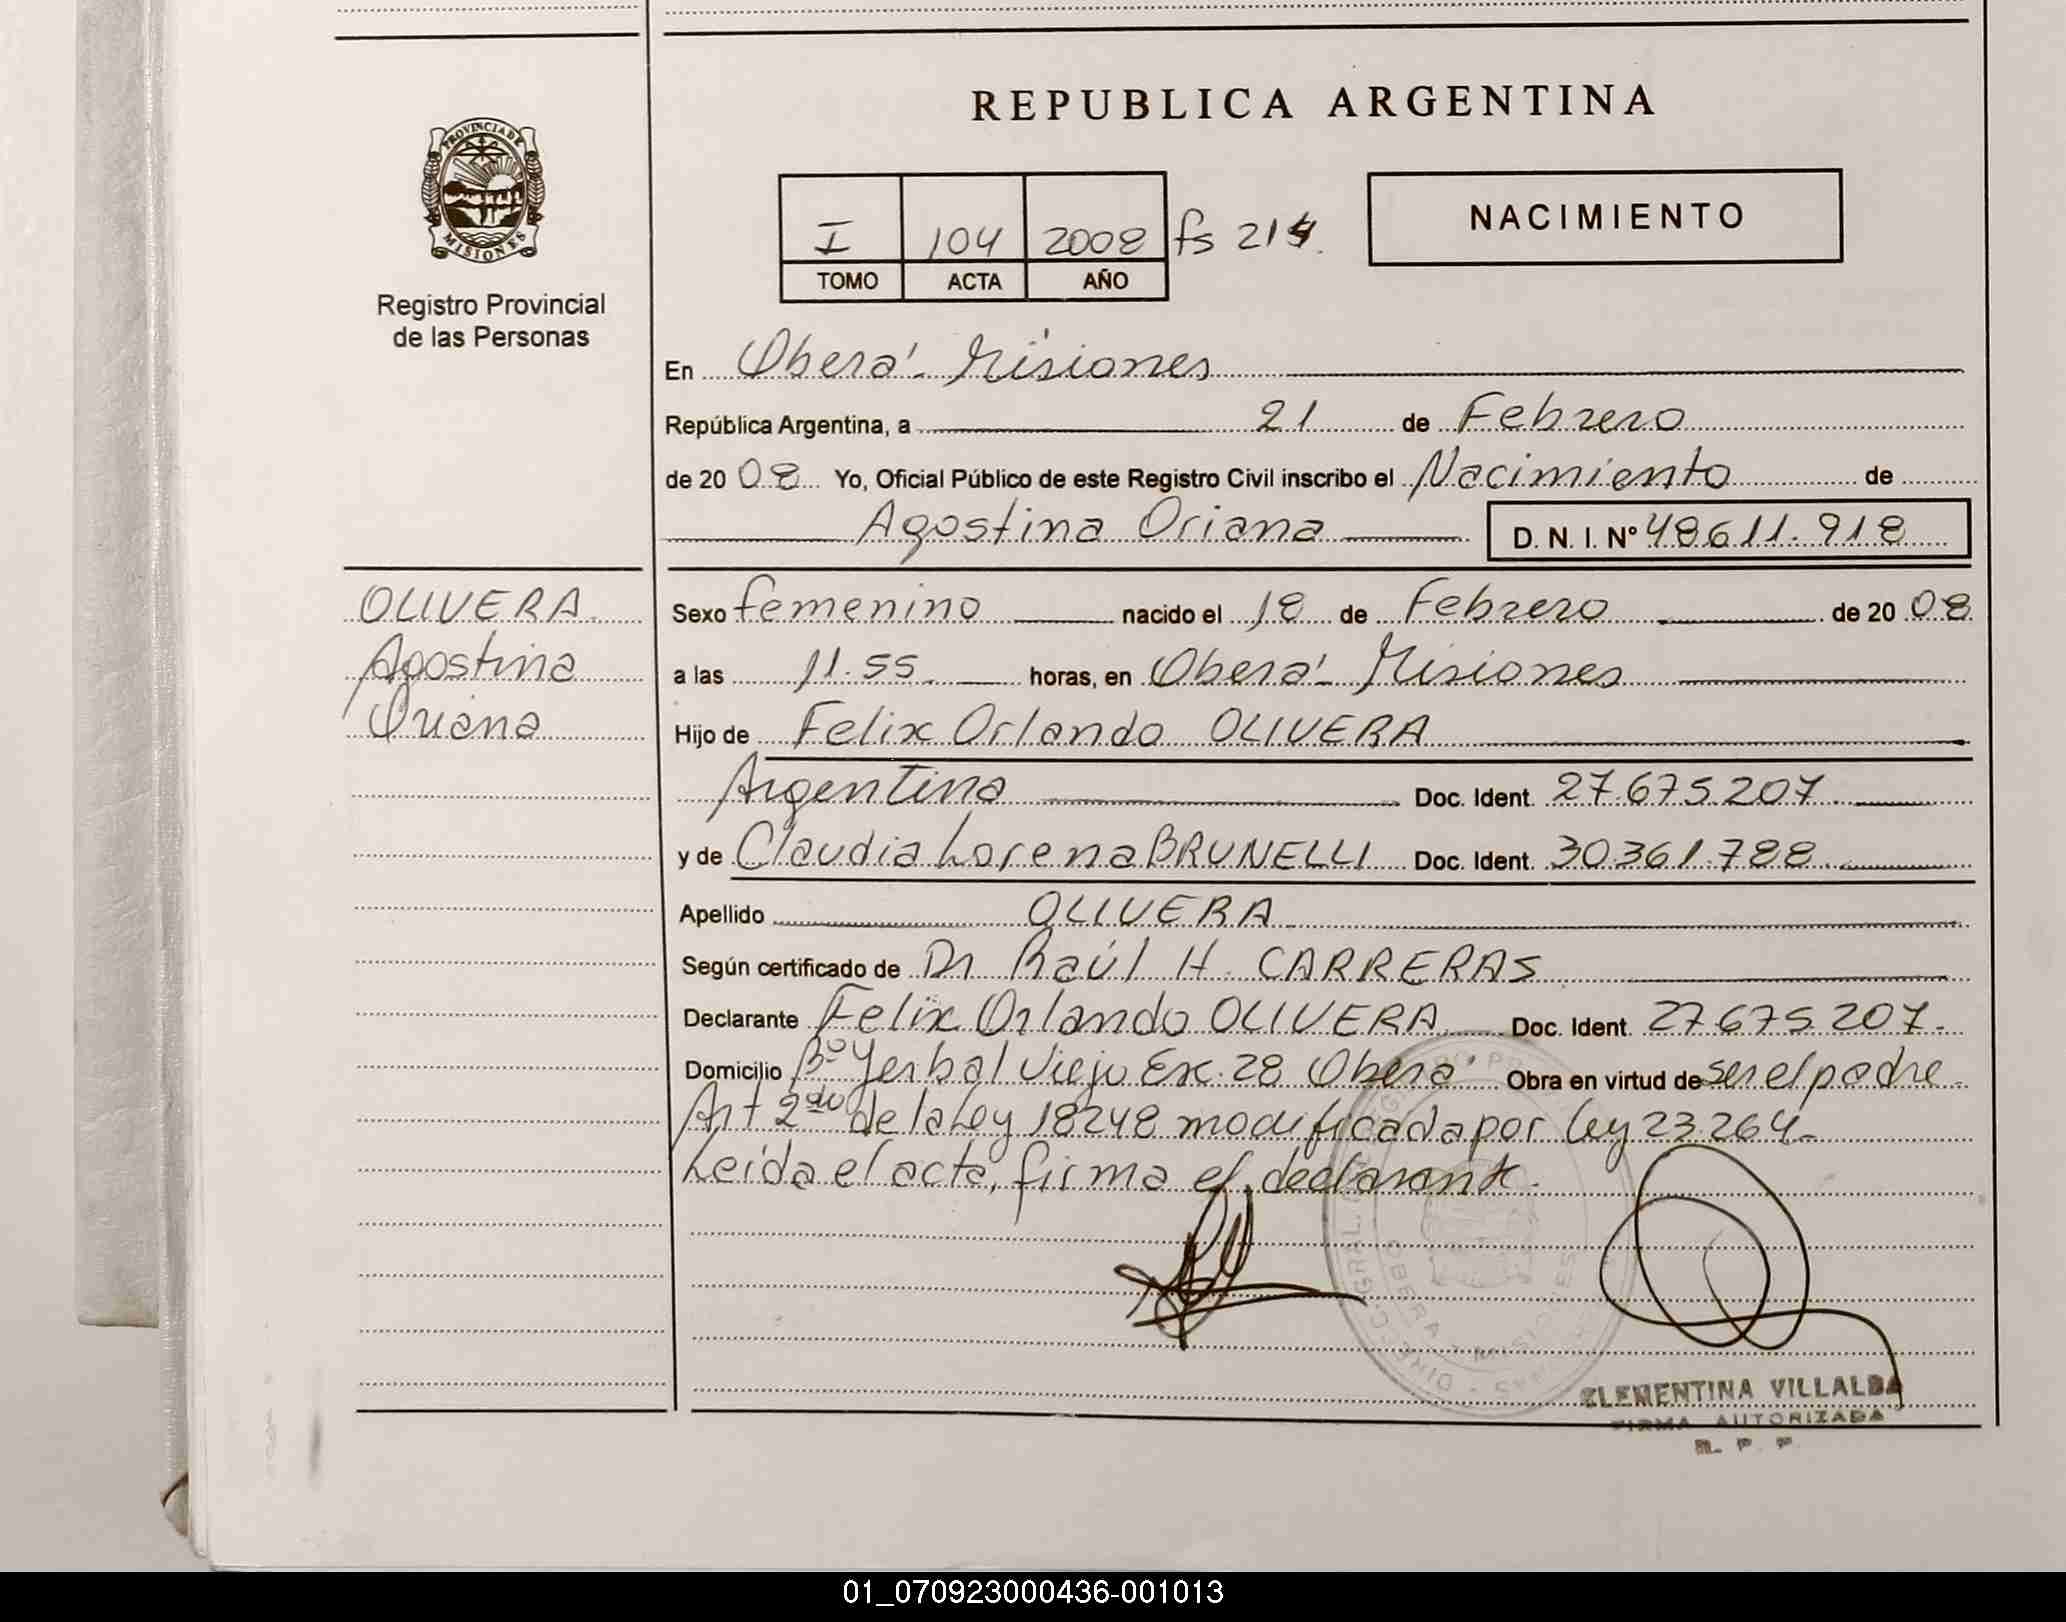 REPUBLICA ARGENTINA
PROVINCIA DE
MISIONES
Registro Provincial
de las Personas
I 104 2008 fs 214.
TOMO ACTA AÑO
NACIMIENTO
En Oberá - Misiones
República Argentina, a 21 de Febrero
de 20 08 Yo, Oficial Público de este Registro Civil inscribo el Nacimiento de
Agostina Oriana D. N. I. Nº 48611.918
OLIVERA
Agostina
Oriana
Sexo femenino nacido el 18 de Febrero de 20 08
a las 11.55 horas, en Oberá - Misiones
Hijo de Felix Orlando OLIVERA
Argentina Doc. Ident. 27.675.207
y de Claudia Lorena BRUNELLI Doc. Ident. 30361.788
Apellido OLIVERA
Según certificado de Dr Raúl H. CARRERAS
Declarante Felix Orlando OLIVERA Doc. Ident. 27675.207.
Domicilio Bº Yerbal Viejo Ex. 28 Oberá Obra en virtud de ser el padre
Art 2do de la Ley 18248 modificada por Ley 23.264-
Leída el acta, firma el declarante.
OBERA - MISIONES
CLEMENTINA VILLALBA
FIRMA AUTORIZADA
R. P. P.
01_070923000436-001013